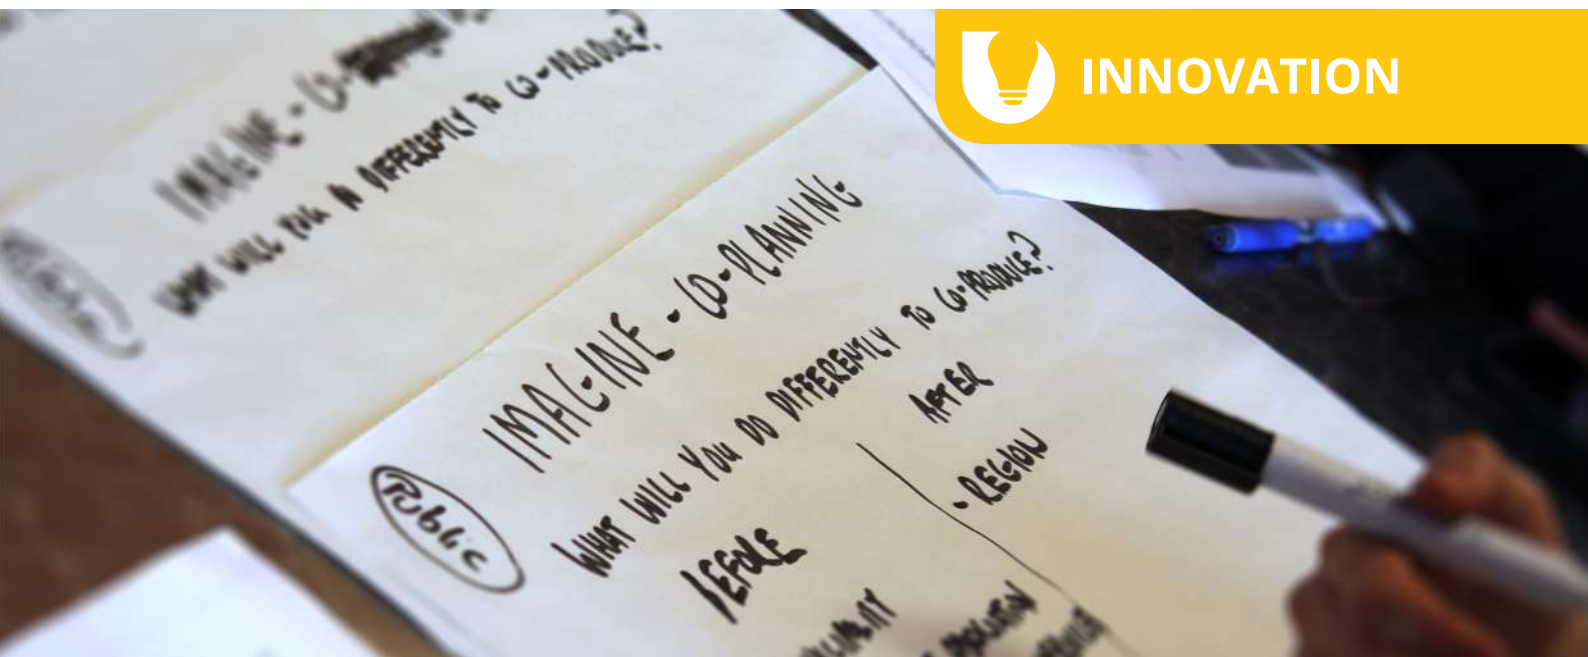 INNOVATION
IMAGINE - CO-
WHAT WILL YOU DO DIFFERENTLY TO CO-PRODUCE?
IMAGINE - CO-PLANNING
Public
WHAT WILL YOU DO DIFFERENTLY TO CO-PRODUCE?
BEFORE
AFTER
• REGION